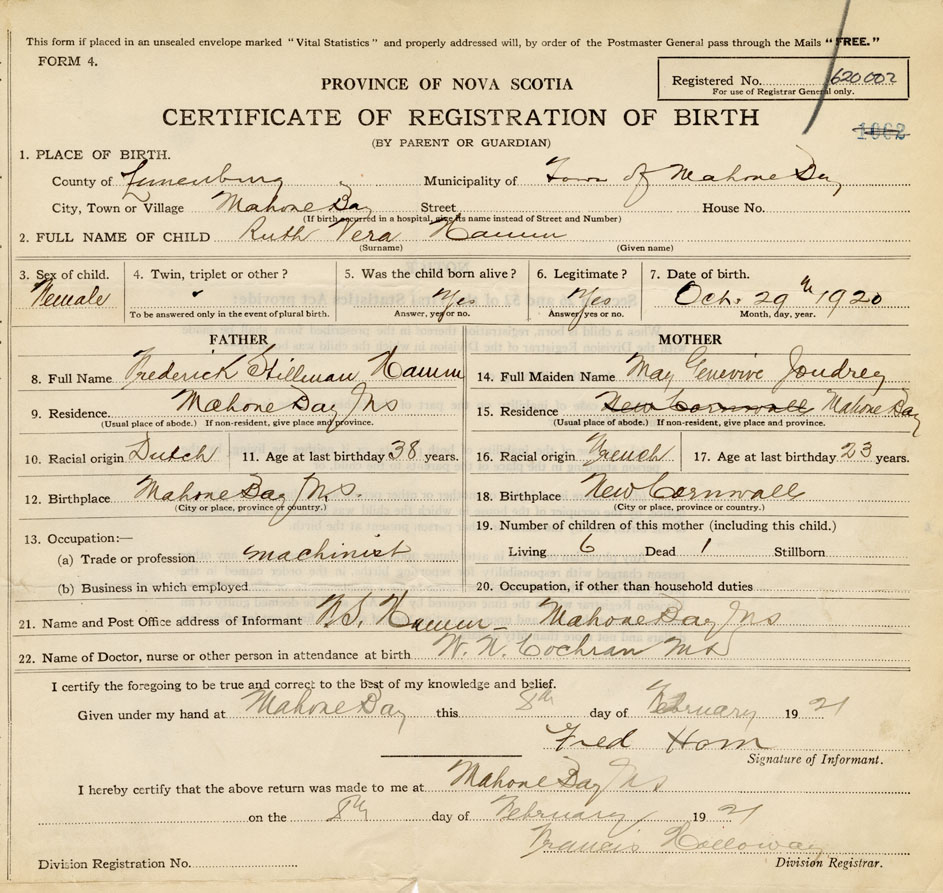 This form if placed in an unsealed envelope marked "Vital Statistics" and properly addressed will, by order of the Postmaster General pass through the Mails "FREE."
FORM 4.
Registered No. 620002
For use of Registrar General only.
PROVINCE OF NOVA SCOTIA
CERTIFICATE OF REGISTRATION OF BIRTH
1002
(BY PARENT OR GUARDIAN)
1. PLACE OF BIRTH.
County of Lunenburg Municipality of Town of Mahone Bay
City, Town or Village Mahone Bay Street House No.
(If birth occurred in a hospital, give its name instead of Street and Number)
2. FULL NAME OF CHILD Ruth Vera Hamm
(Surname) (Given name)
3. Sex of child. 4. Twin, triplet or other? 5. Was the child born alive? 6. Legitimate? 7. Date of birth.
Female Yes Yes Oct. 29th 1920
To be answered only in the event of plural birth. Answer, yes or no. Answer, yes or no. Month, day, year.
FATHER MOTHER
8. Full Name Frederick Stillman Hamm 14. Full Maiden Name May Genevive Joudrey
9. Residence Mahone Bay NS 15. Residence New Cornwall Mahone Bay
(Usual place of abode.) If non-resident, give place and province. (Usual place of abode.) If non-resident, give place and province.
10. Racial origin Dutch 11. Age at last birthday 38 years. 16. Racial origin French 17. Age at last birthday 23 years.
12. Birthplace Mahone Bay N.S. 18. Birthplace New Cornwall
(City or place, province or country.) (City or place, province or country.)
13. Occupation:— 19. Number of children of this mother (including this child.)
(a) Trade or profession machinist Living 6 Dead 1 Stillborn
(b) Business in which employed 20. Occupation, if other than household duties
21. Name and Post Office address of Informant F.S. Hamm - Mahone Bay NS
22. Name of Doctor, nurse or other person in attendance at birth W. N. Cochran MD
I certify the foregoing to be true and correct to the best of my knowledge and belief.
Given under my hand at Mahone Bay this 8th day of February 1921
Fred Ham
Signature of Informant.
I hereby certify that the above return was made to me at Mahone Bay NS
on the 8th day of February 1921
Francis Holloway
Division Registration No. Division Registrar.